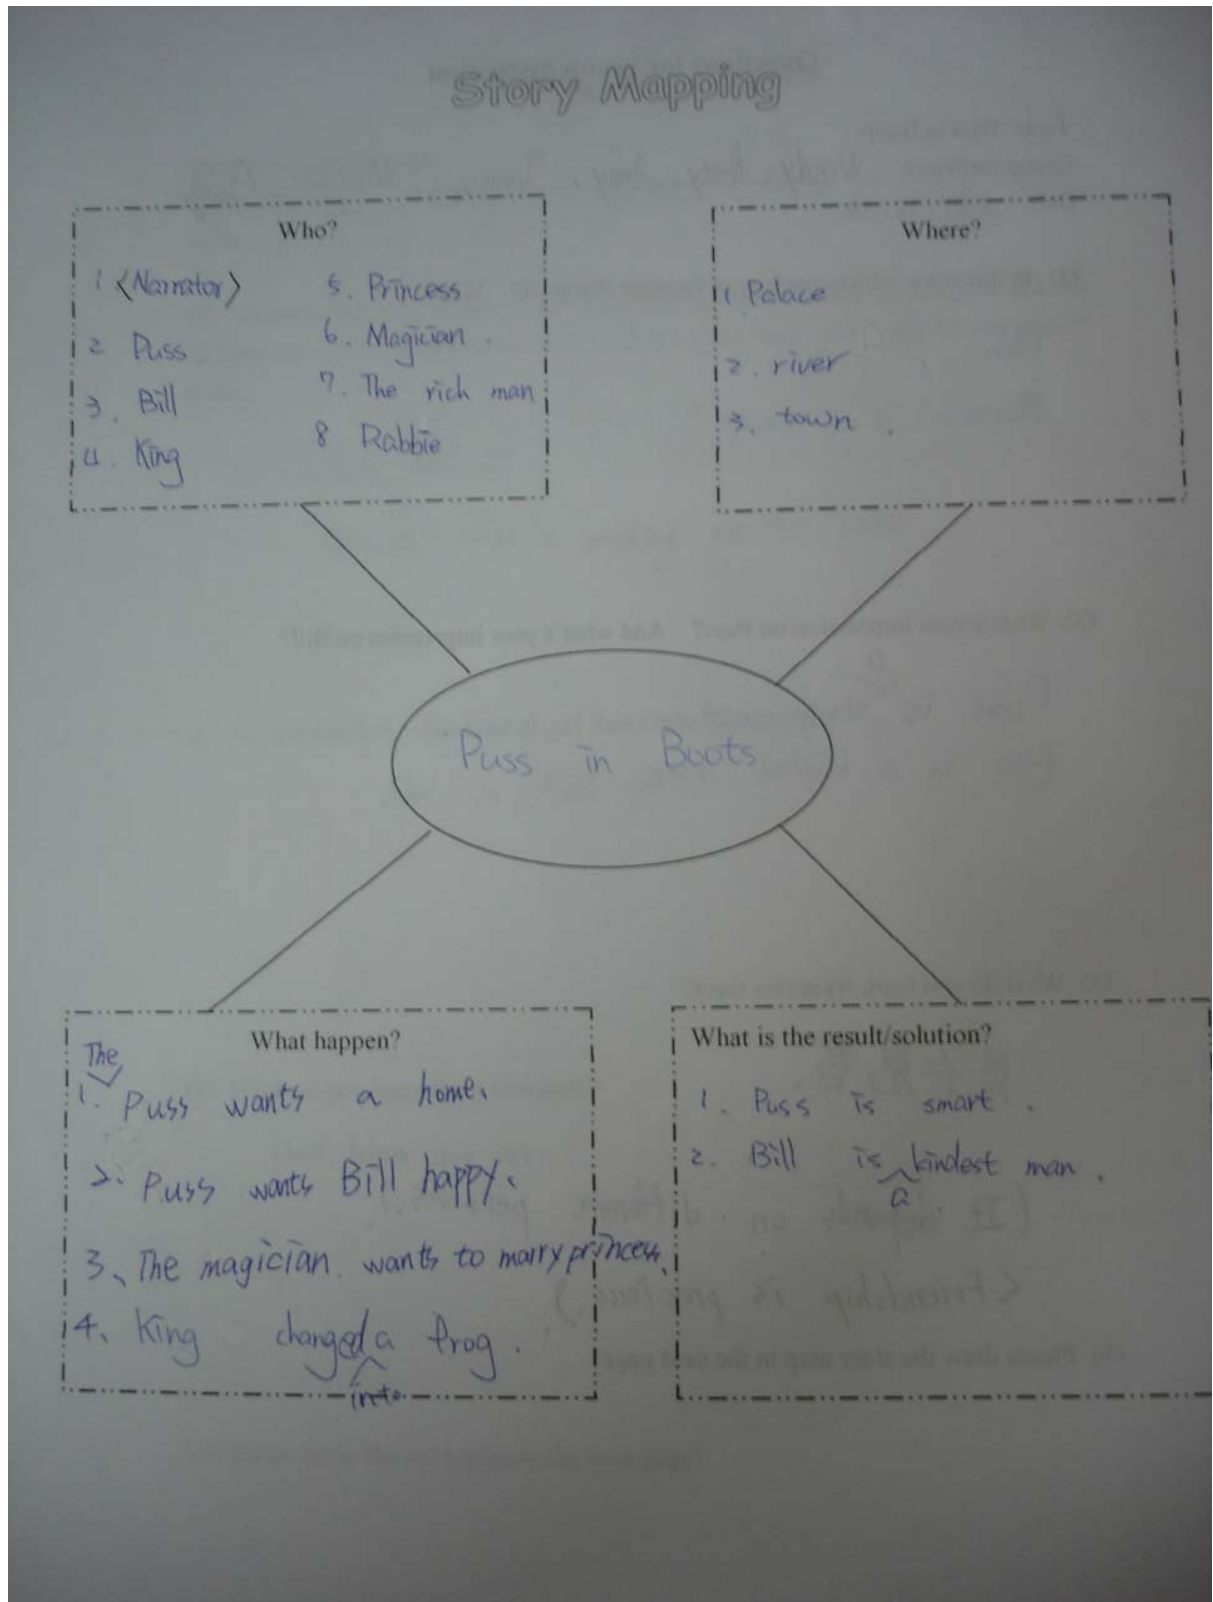 Story Mapping
Who?
1 <Narrator>
2 Puss
3. Bill
4. King
5. Princess
6. Magician.
7. The rich man
8 Rabbie
Where?
1. Palace
2. river
3. town.
Puss in Boots
What happen?
The
1. Puss wants a home.
2. Puss wants Bill happy.
3、The magician wants to marry princess.
4、King changed a frog.
into
What is the result/solution?
1. Puss is smart.
2. Bill is kindest man.
a